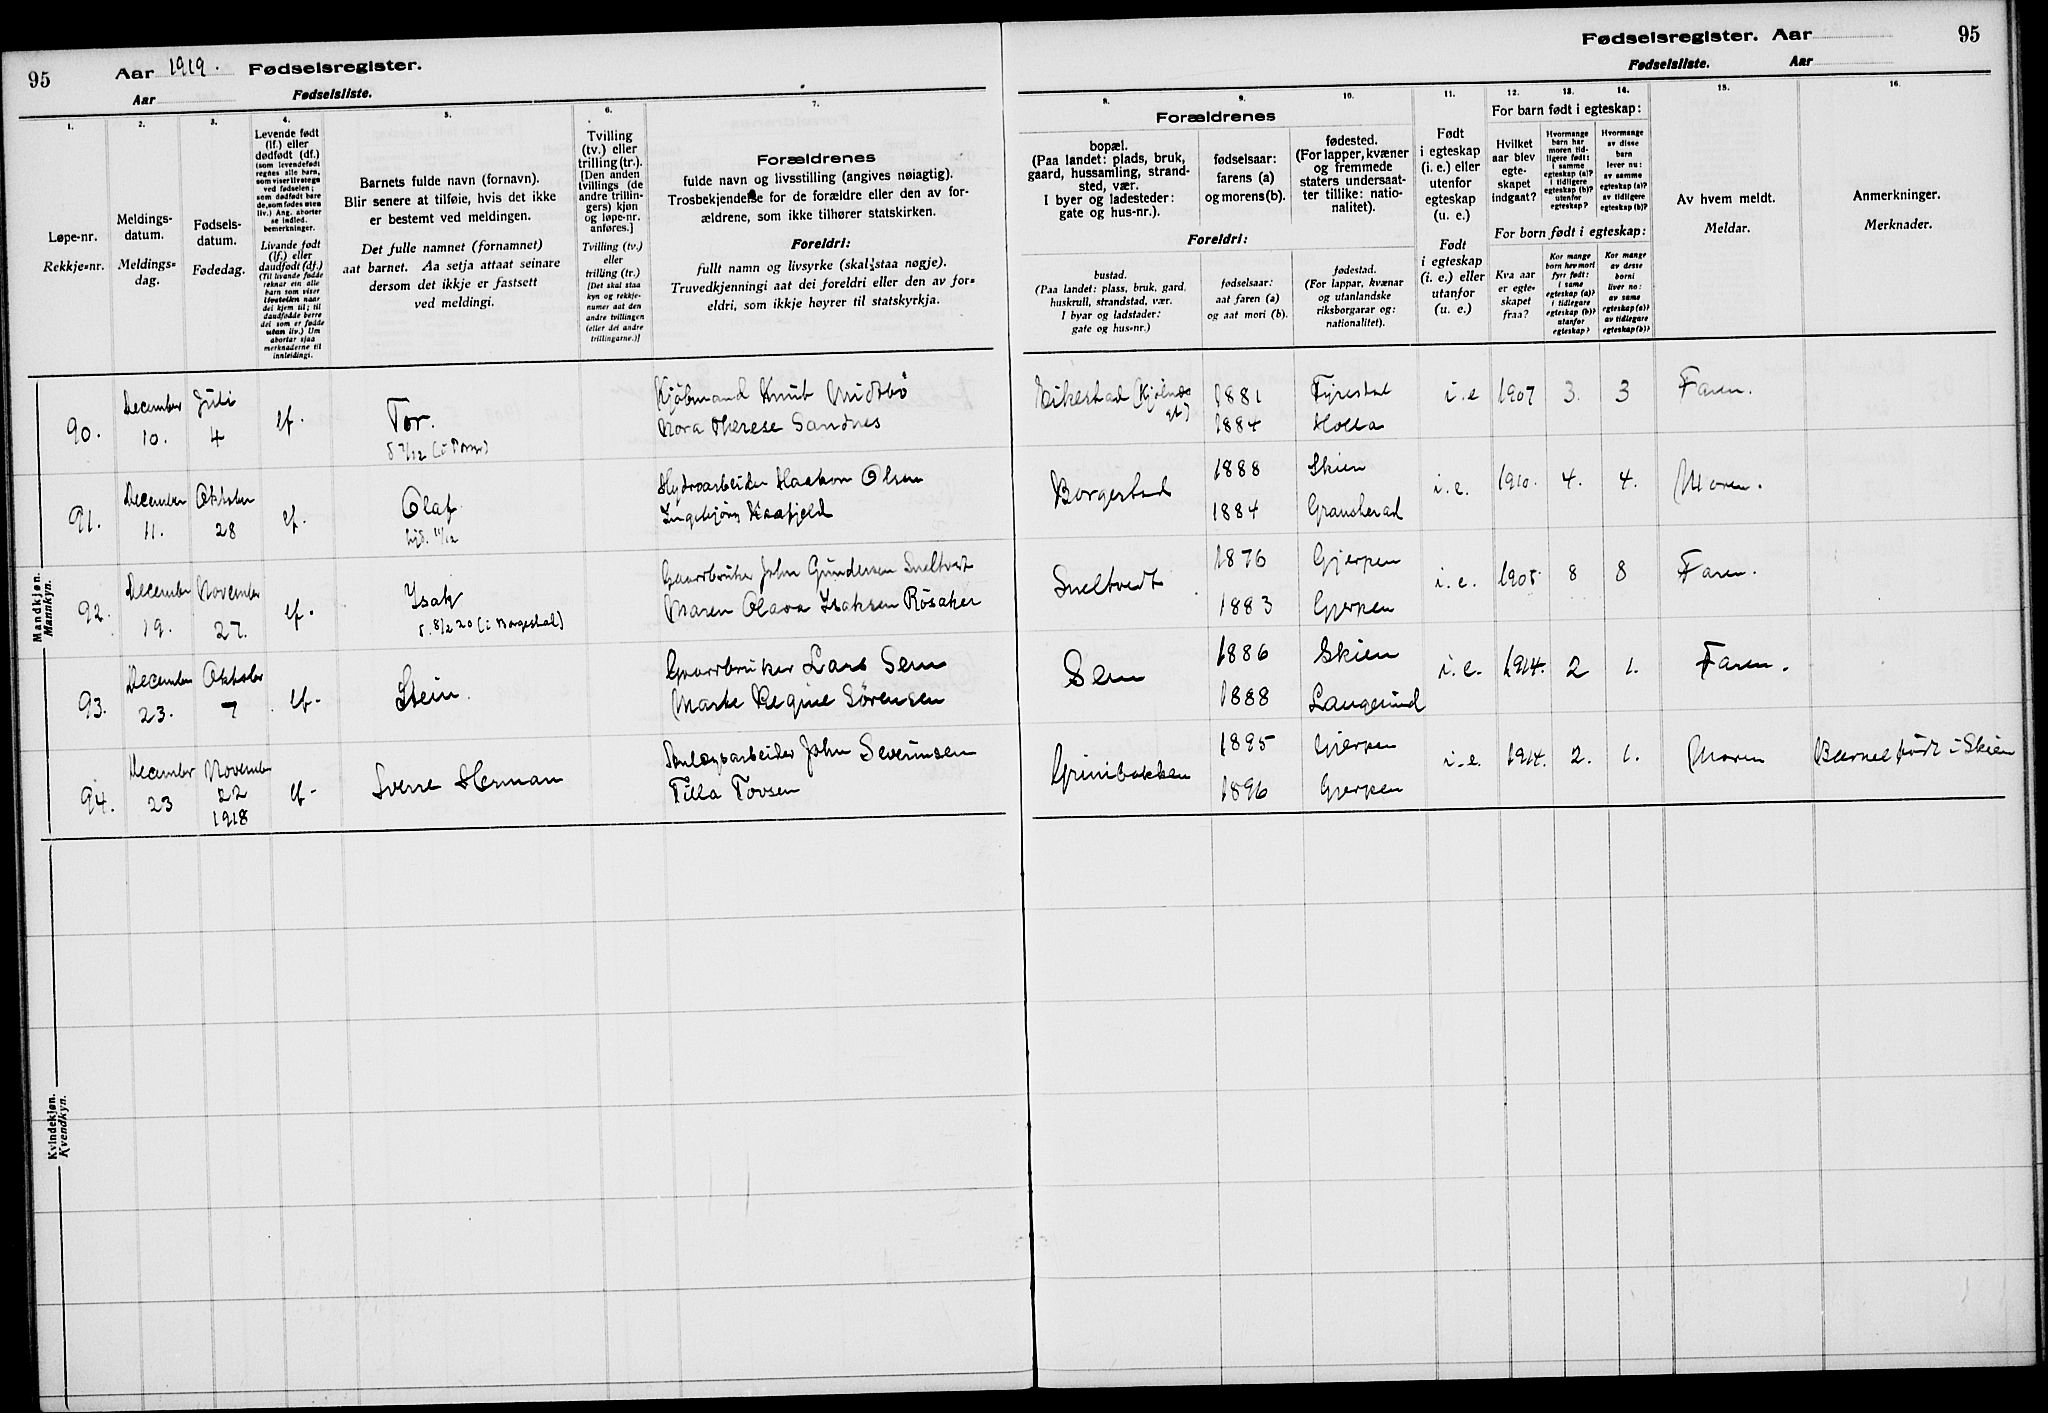 95
Aar 1919. Fødselsregister.
Aar Fødselsliste.
Fødselsregister. Aar
Fødselsliste. Aar
95
1.
Løpe-nr.
Rekkje=nr.
2.
Meldings-
datum.
Meldings=
dag.
3.
Fødsels-
datum.
Fødedag.
4.
Levende født
(lf.) eller
dødfødt (df.)
(som levendefødt
regnes alle barn,
som viser livstegn
ved fødselen;
som dødfødt bare
de, som fødes uten
liv.) Ang. aborter
se indled.
bemerkninger.
Livande født
(lf.) eller
daudfødt (df.)
(Til livande fødde
reknar ein alle
barn som viser
livsteikn naar
dei kjem til; til
daudfødde berre
dei som er fødde
utan liv.) Um
abortar sjaa
merknaderne til
innleidingi.
5.
Barnets fulde navn (fornavn).
Blir senere at tilføie, hvis det ikke
er bestemt ved meldingen.
Det fulle namnet (fornamnet)
aat barnet. Aa setja attaat seinare
dersom det ikkje er fastsett
ved meldingi.
6.
Tvilling
(tv.) eller
trilling (tr.).
[Den anden
tvillings (de
andre trillin-
gers) kjøn
og løpe-nr.
anføres.]
Tvilling (tv.)
eller
trilling (tr.)
[Det skal staa
kyn og rekkje-
numer aat den
andre tvillingen
(eller dei andre
trillingarne.)]
7.
Forældrenes
fulde navn og livsstilling (angives nøiagtig).
Trosbekjendelse for de forældre eller den av for-
ældrene, som ikke tilhører statskirken.
Foreldri:
fullt namn og livsyrke (skal staa nøgje).
Truvedkjenningi aat dei foreldri eller den av for=
eldri, som ikkje høyrer til statskyrkja.
Forældrenes
8.
bopæl.
(Paa landet: plads, bruk,
gaard, hussamling, strand-
sted, vær.
I byer og ladesteder:
gate og hus-nr.).
9.
fødselsaar:
farens (a)
og morens (b).
10.
fødested.
(For lapper, kvæner
og fremmede
staters undersaat-
ter tillike: natio-
nalitet).
Foreldri:
bustad.
(Paa landet: plass, bruk, gard,
huskrull, strandstad, vær.
I byar og ladstader:
gate og hus=nr.)
fødselsaar:
aat faren (a)
og aat mori (b).
fødestad.
(For lappar, kvænar
og utanlandske
riksborgarar og:
nationalitet).
11.
Født
i egteskap
(i. e.) eller
utenfor
egteskap
(u. e.)
Født
i egteskap
(i. e.) eller
utanfor
(u. e.)
For barn født i egteskap:
12.
Hvilket
aar blev
egte-
skapet
indgaat?
13.
Hvormange
barn har
moren tid-
ligere født:
i samme
egteskap (a)?
i tidligere
egteskap (b)?
utenfor
egteskap?
14.
Hvormange
av disse
barn
lever nu:
av samme
egteskap (a)?
av tidligere
egteskap (b)?
For born født i egteskap:
Kva aar
er egte-
skapet
fraa?
Kor mange
born hev mori
fyrr født:
i same
egteskap (a)?
i tidlegare
egteskap (b)?
utanfor
egteskap?
Kor mange
av desse
borni
liver no:
av same
egteskap (a)?
av tidlegare
egteskap (b)?
15.
Av hvem meldt.
Meldar.
16.
Anmerkninger.
Merknader.
Mandkjøn.
Mannkyn.
90. December 10. Juli 4 lf. Tor.
Kjøbmand Knut Midtbø
Nora Therese Sandnes
Eikestad (Kjølnes
1881 Fyresdal
1884 Holla
i.e 1907 3. 3 Faren.
91. December 11. Oktober 28 lf. Olaf
hjd. 11/12
Hydroarbeider Haakon Olsen
Ingebjørg Kaafjeld
Borgestad
1888 Skien
1884 Gransherad
i.e. 1910. 4. 4. Moren.
92. December 19. November 27. lf. Isak
d. 8/2 20 (i Borgestad)
Gaardbruker John Gundersen Sneltvedt
Maren Olava Isaksen Røsaker
Sneltvedt
1876 Gjerpen
1883 Gjerpen
i.e. 1905 8 8 Faren.
93. December 23. Oktober 7 lf. Stein.
Gaardbruker Lars Sem
Marte Regine Sørensen
Sem
1886 Skien
1888 Langesund
i.e. 1914. 2 1. Faren.
94. December 23 November 22 1918 lf. Sverre Herman
Anlægsarbeider John Severinsen
Tilla Tovsen
Grinibakken
1895 Gjerpen
1896 Gjerpen
i.e. 1914. 2. 1. Moren Barnet født i Skien
Kvindekjøn.
Kvendkyn.